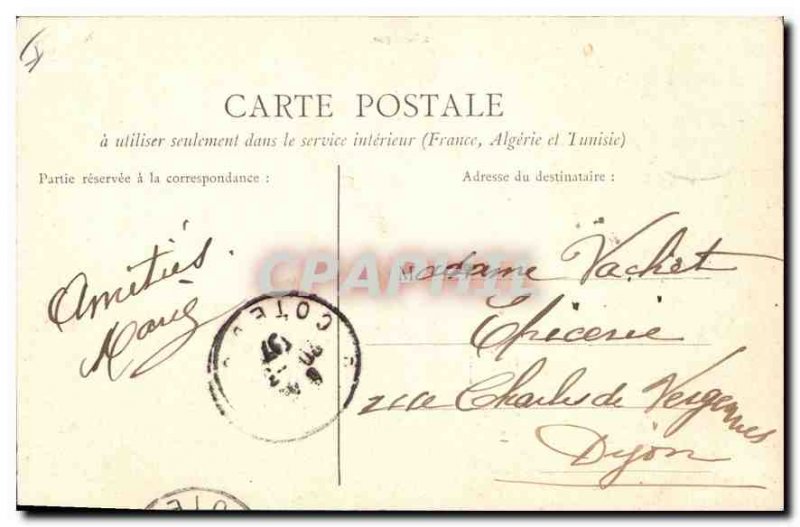 CARTE POSTALE
à utiliser seulement dans le service intérieur (France, Algérie et Tunisie)
Partie réservée à la correspondance :
Adresse du destinataire :
Amitiés.
Marie
Madame Vachet
Epicerie
rue Charles de Vergennes
Dijon
CPAPHIL
COTE
COTE